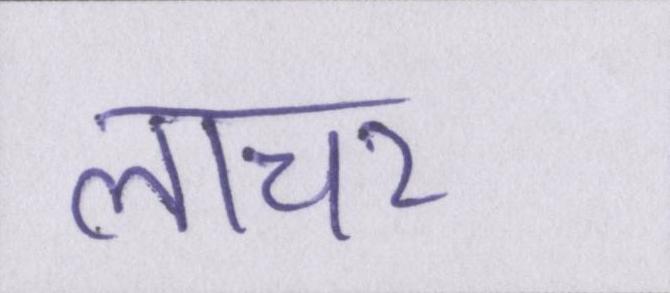 लाचर